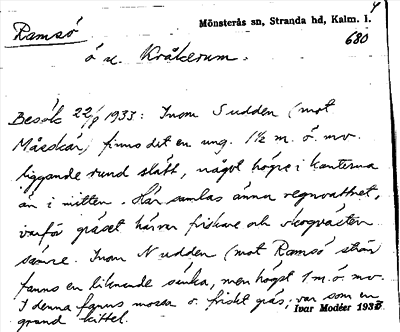 Ramsö
Mönsterås sn, Stranda hd, Kalm. l.
4
680
ö u. Kråkerum.
Besök 22/8 1933: Inom S udden (mot
Måsskär) finns det en ung. 1½ m. ö. mv.
liggande rund slätt, något högre i kanterna
än i mitten. Här samlas ännu regnvattnet,
varför gräset här var friskare och skogväxten
sämre. Inom N udden (mot Ramsö strön
fanns en liknande sänka, men högst 1 m. ö. mv.
I denna fanns mossa o. friskt gräs; var som en
grund kittel.
Ivar Modéer 1933